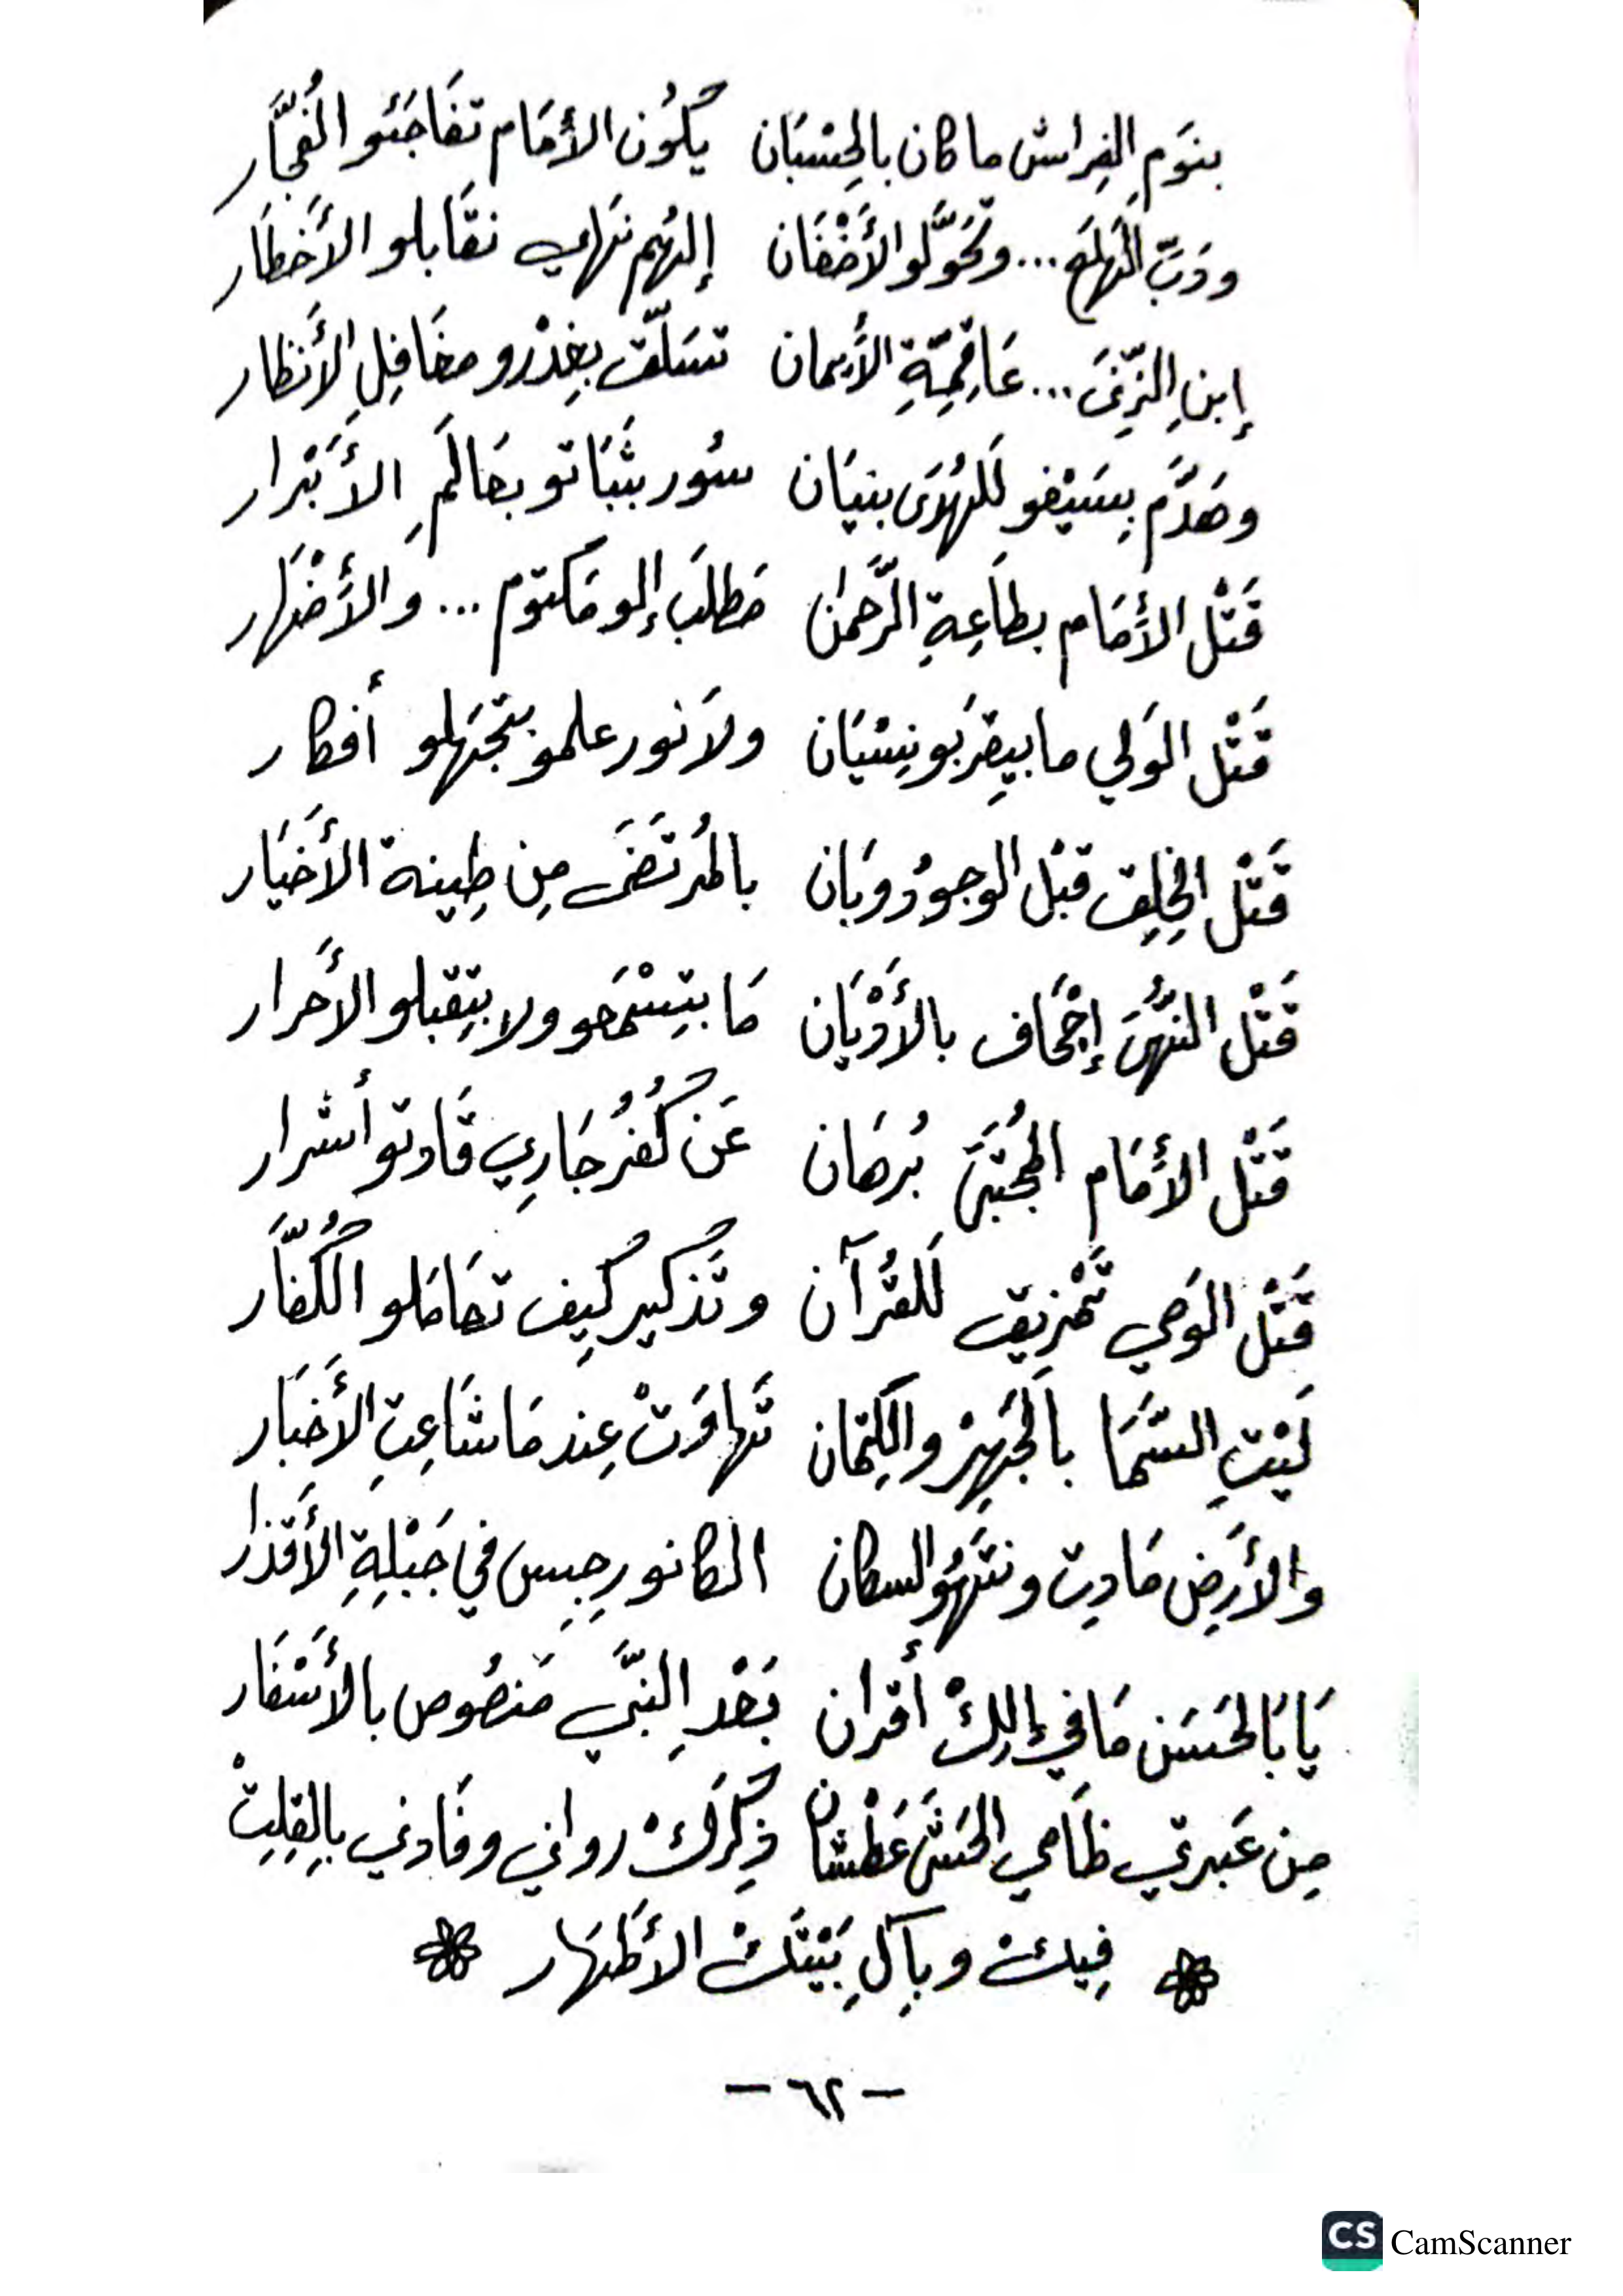 بنَومِ الفِراش ما كان بالحِسْبَان يكُون الأمَام تفَاجَئو الفُجَّار
ودَبّ الهَلَع ... وتحَوَّلو الأَضْغَان إلهُم نهَاي نقَابلو الأَخطَار
إبنِ الزِّنَى ... عَا قِمِّةِ الأَيمان تسَلَّق بغِدْرو مغَافِلِ الأَنظار
وهَدَّم بِسَيْفو لَلهُدَى بنيَان سُور بثَبَاتو بعَالَمِ الأَبْرار
قَتْل الأمَام بطَاعِةِ الرَّحمٰن مَطلَب إلو مَكتوم ... وَالأَضْهَر
قَتْل الوَلي ما بيِقرَبو نِسْيَان ولَا نور علمو بتجهَلو أفكار
قَتْل الخِلِق قبْل الوجوُد وبَان بالمُرتَضَى مِن طِينة الأَخيَار
قَتْل النُّهَى إجْحَاف بالأَدْيَان مَا بتِسْمَحو ولا بتِقبلو الأَحرار
قَتْل الأمَام المُجتَبَى بُرهَان عَن كُفُر جَارِي قَادتو أشرار
قَتْل الوَصي تَمْزيق لَلقُرآن وتَذكير كِيف تعَامَلو الكُفَّار
لَيْتِ السَّمَا بالجَهِرْ والكِتمان تَهاوَتْ عِند مَا شَاعِتِ الأَخبَار
والأَرِض مَادِت ونتَهُو السكان الكانو رِجِس في جَبْلِةِ الأَقذار
يَا بَا لحَسَن مَا في إلِكْ أقران بَعْدِ النبَّي مَنصُوص بالأَسْفَار
مِن عَبرتي ظَامي الحَشَى عَطْشان ذِكرَكْ رواني وفَادني بالِقِلِتْ
فِيك وبآلِ بَيْتَكْ الأَطهَار
- ٦٢ -
CS CamScanner